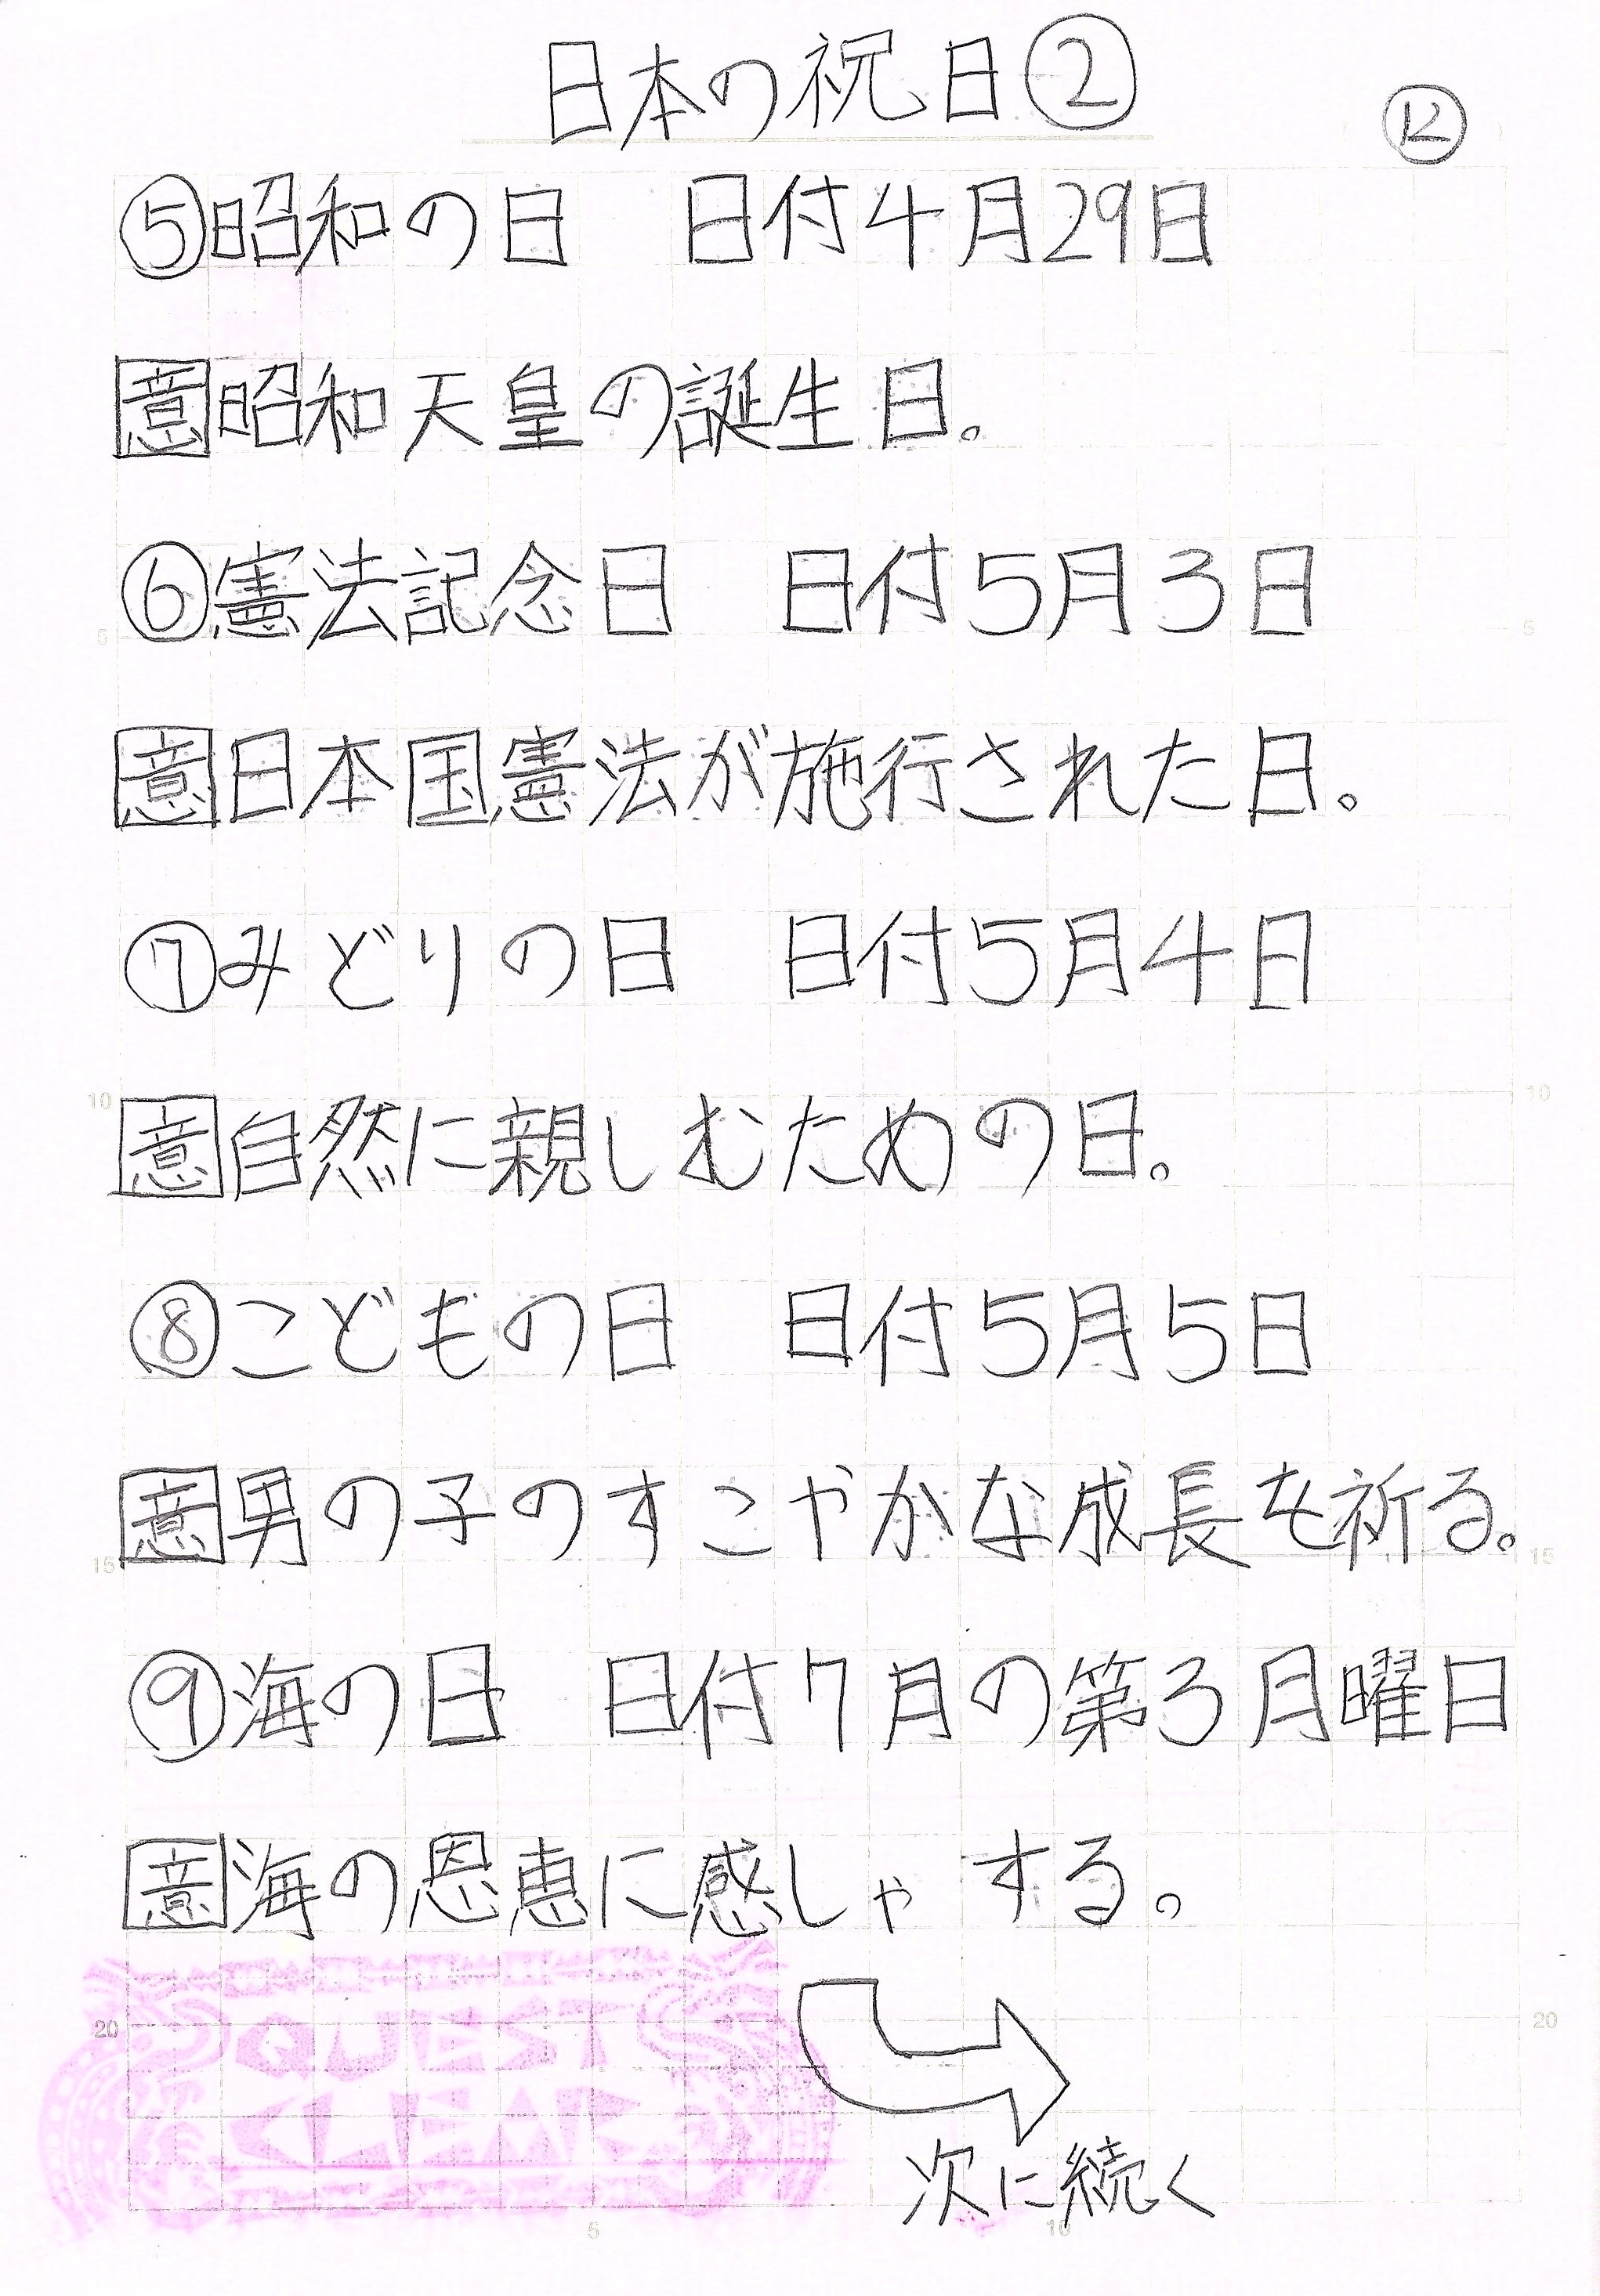 日本の祝日②
⑫
⑤昭和の日　日付4月29日
意昭和天皇の誕生日。
⑥憲法記念日　日付5月3日
5 5
意日本国憲法が施行された日。
⑦みどりの日　日付5月4日
10 10
意自然に親しむための日。
⑧こどもの日　日付5月5日
意男の子のすこやかな成長を祈る。
15 15
⑨海の日　日付7月の第3月曜日
意海の恩恵に感しゃする。
QUEST
CLEAR
20 20
次に続く
5 10